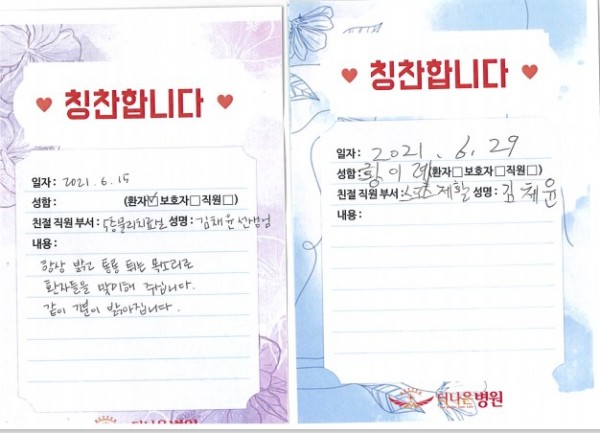 칭찬합니다
일자: 2021. 6. 15
성함: (환자☑보호자□직원□)
친절 직원 부서: 5층물리치료실 성명: 김채윤 선생님
내용:
항상 밝고 통통 튀는 목소리로
환자들을 맞이해 주십니다.
같이 기분이 밝아집니다.
더나은병원
칭찬합니다
일자: 2021. 6. 29
성함: 황이례 (환자□보호자□직원□)
친절 직원 부서: 스포재활 성명: 김채윤
내용:
더나은병원